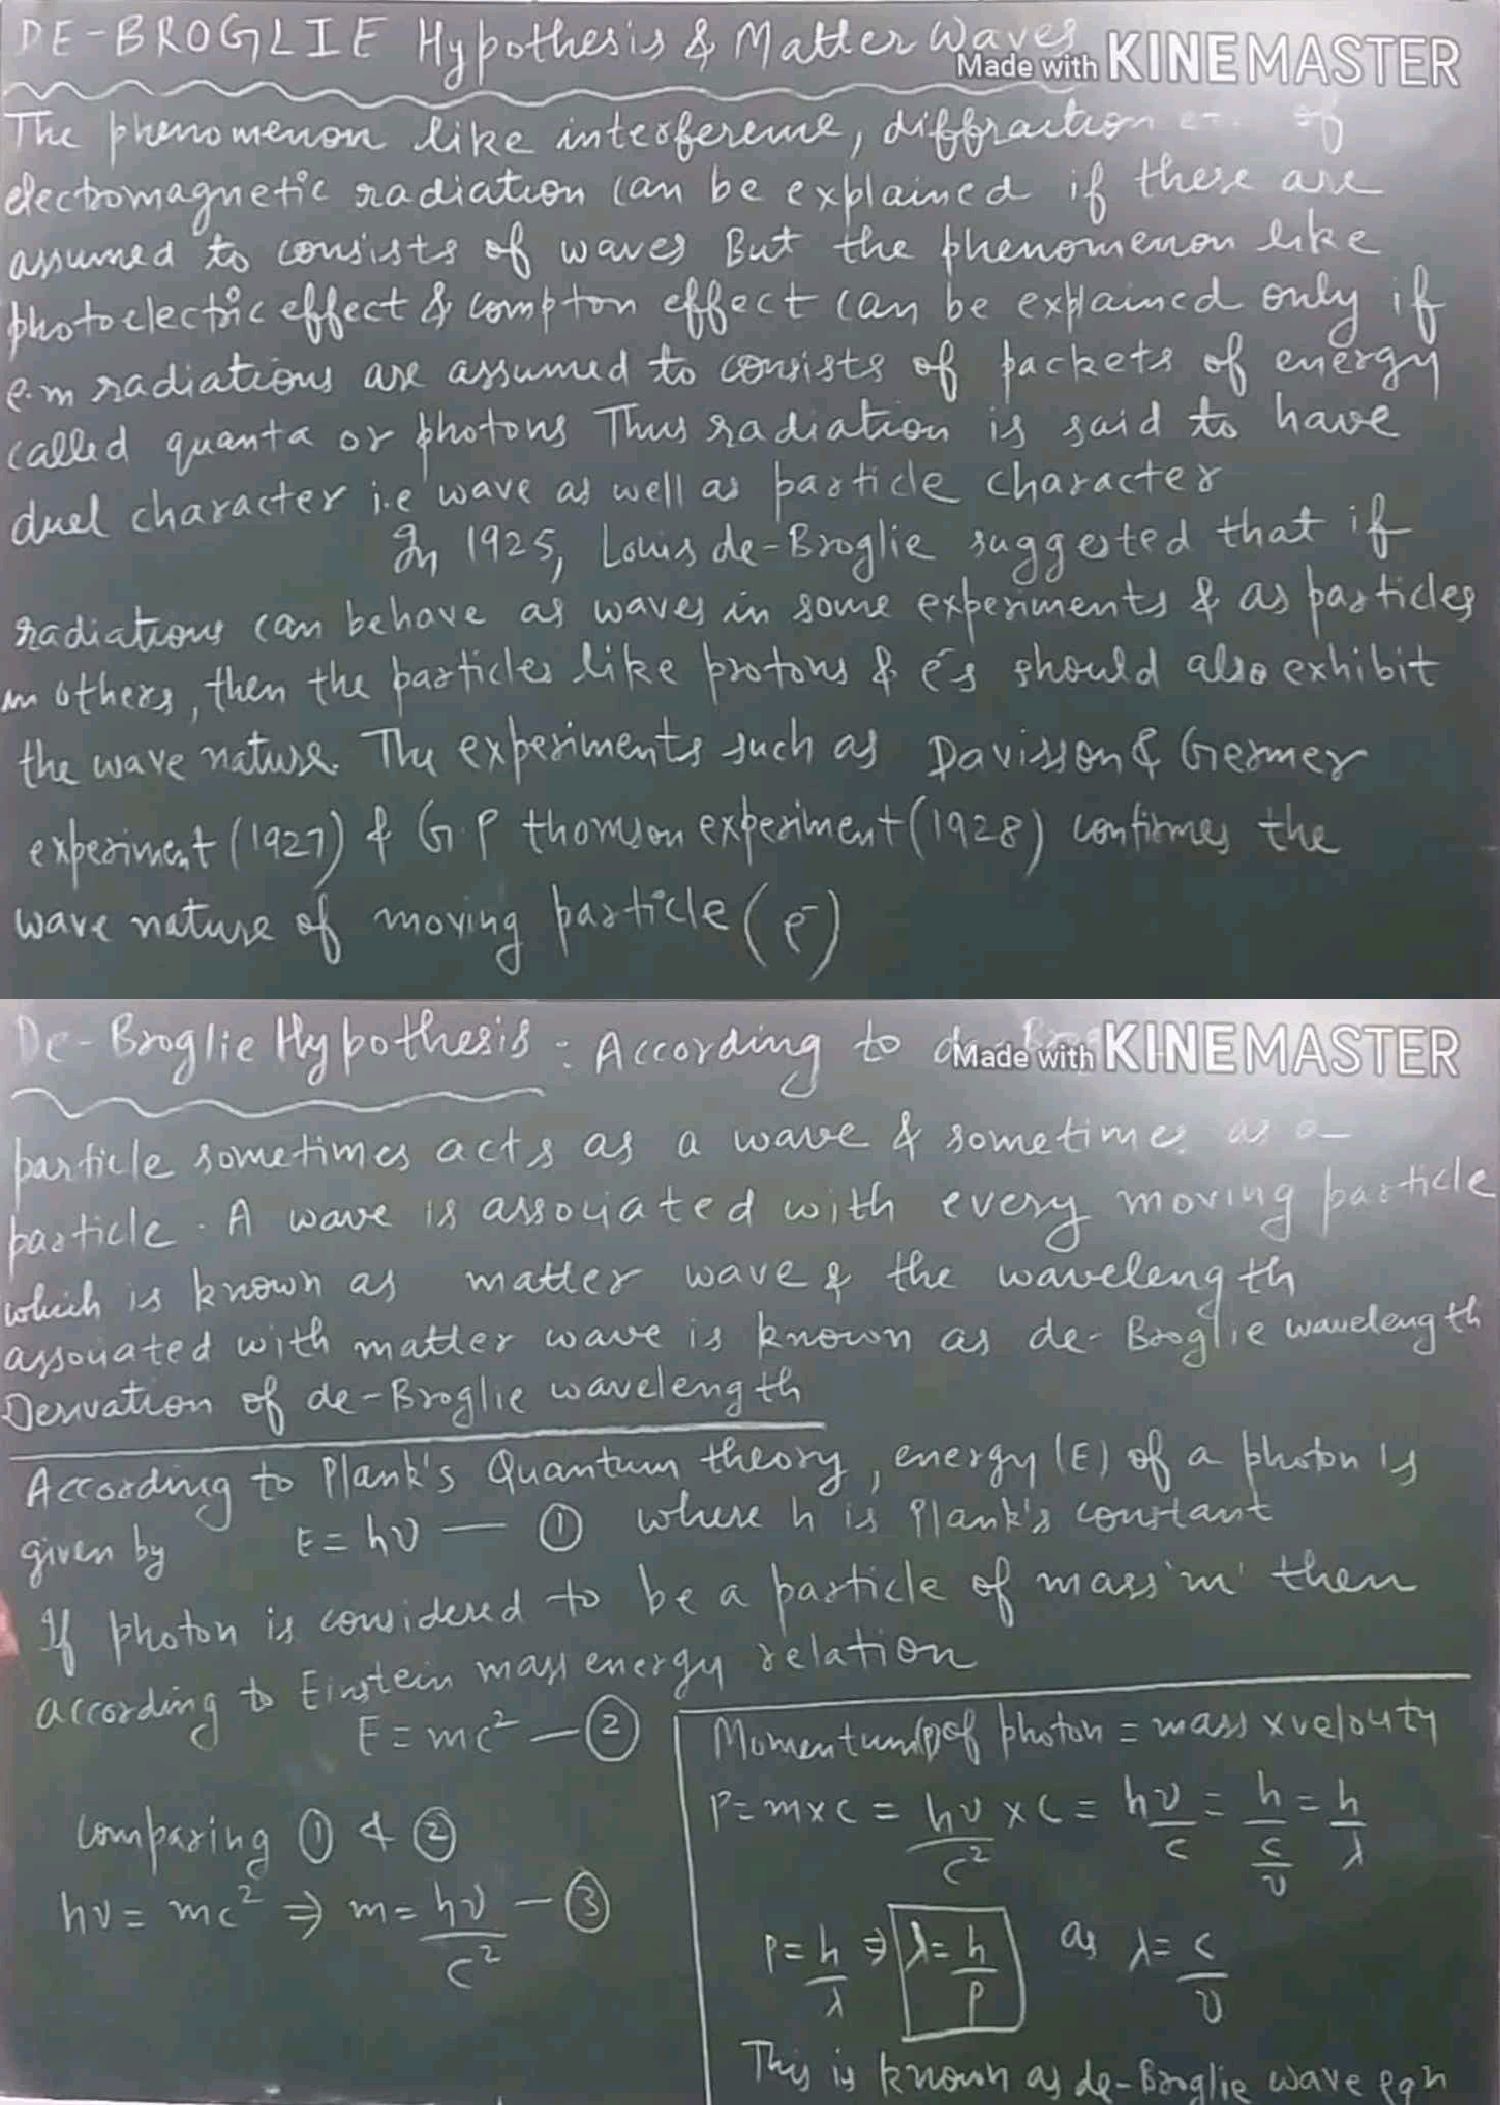 DE-BROGLIE Hypothesis & Matter Waves
Made with KINEMASTER
The phenomenon like interference, diffraction of
electromagnetic radiation can be explained if these are
assumed to consists of waves But the phenomenon like
photoelectric effect & compton effect can be explained only if
e.m radiations are assumed to consists of packets of energy
called quanta or photons Thus radiation is said to have
duel character i.e wave as well as particle character
In 1925, Louis de-Broglie suggested that if
radiations can behave as waves in some experiments & as particles
in others, then the particles like protons & e⁻s should also exhibit
the wave nature. The experiments such as Davisson & Germer
experiment (1927) & G.P thomson experiment (1928) confirmes the
wave nature of moving particle (e⁻)
De-Broglie Hypothesis : According to
Made with KINEMASTER
particle sometimes acts as a wave & sometimes as a
particle. A wave is associated with every moving particle
which is known as matter wave & the wavelength
associated with matter wave is known as de-Broglie wavelength
Derivation of de-Broglie wavelength
According to Plank's Quantum theory, energy (E) of a photon is
given by E = hν — ① where h is Plank's constant
If photon is considered to be a particle of mass 'm' then
according to Einstein mass energy relation
E = mc² — ②
Comparing ① & ②
hν = mc² ⇒ m = hν/c² — ③
Momentum(p) of photon = mass x velocity
P = m x c = hν/c² x c = hν/c = h/(c/ν) = h/λ
P = h/λ ⇒ λ = h/P as λ = c/ν
This is known as de-Broglie wave eqn